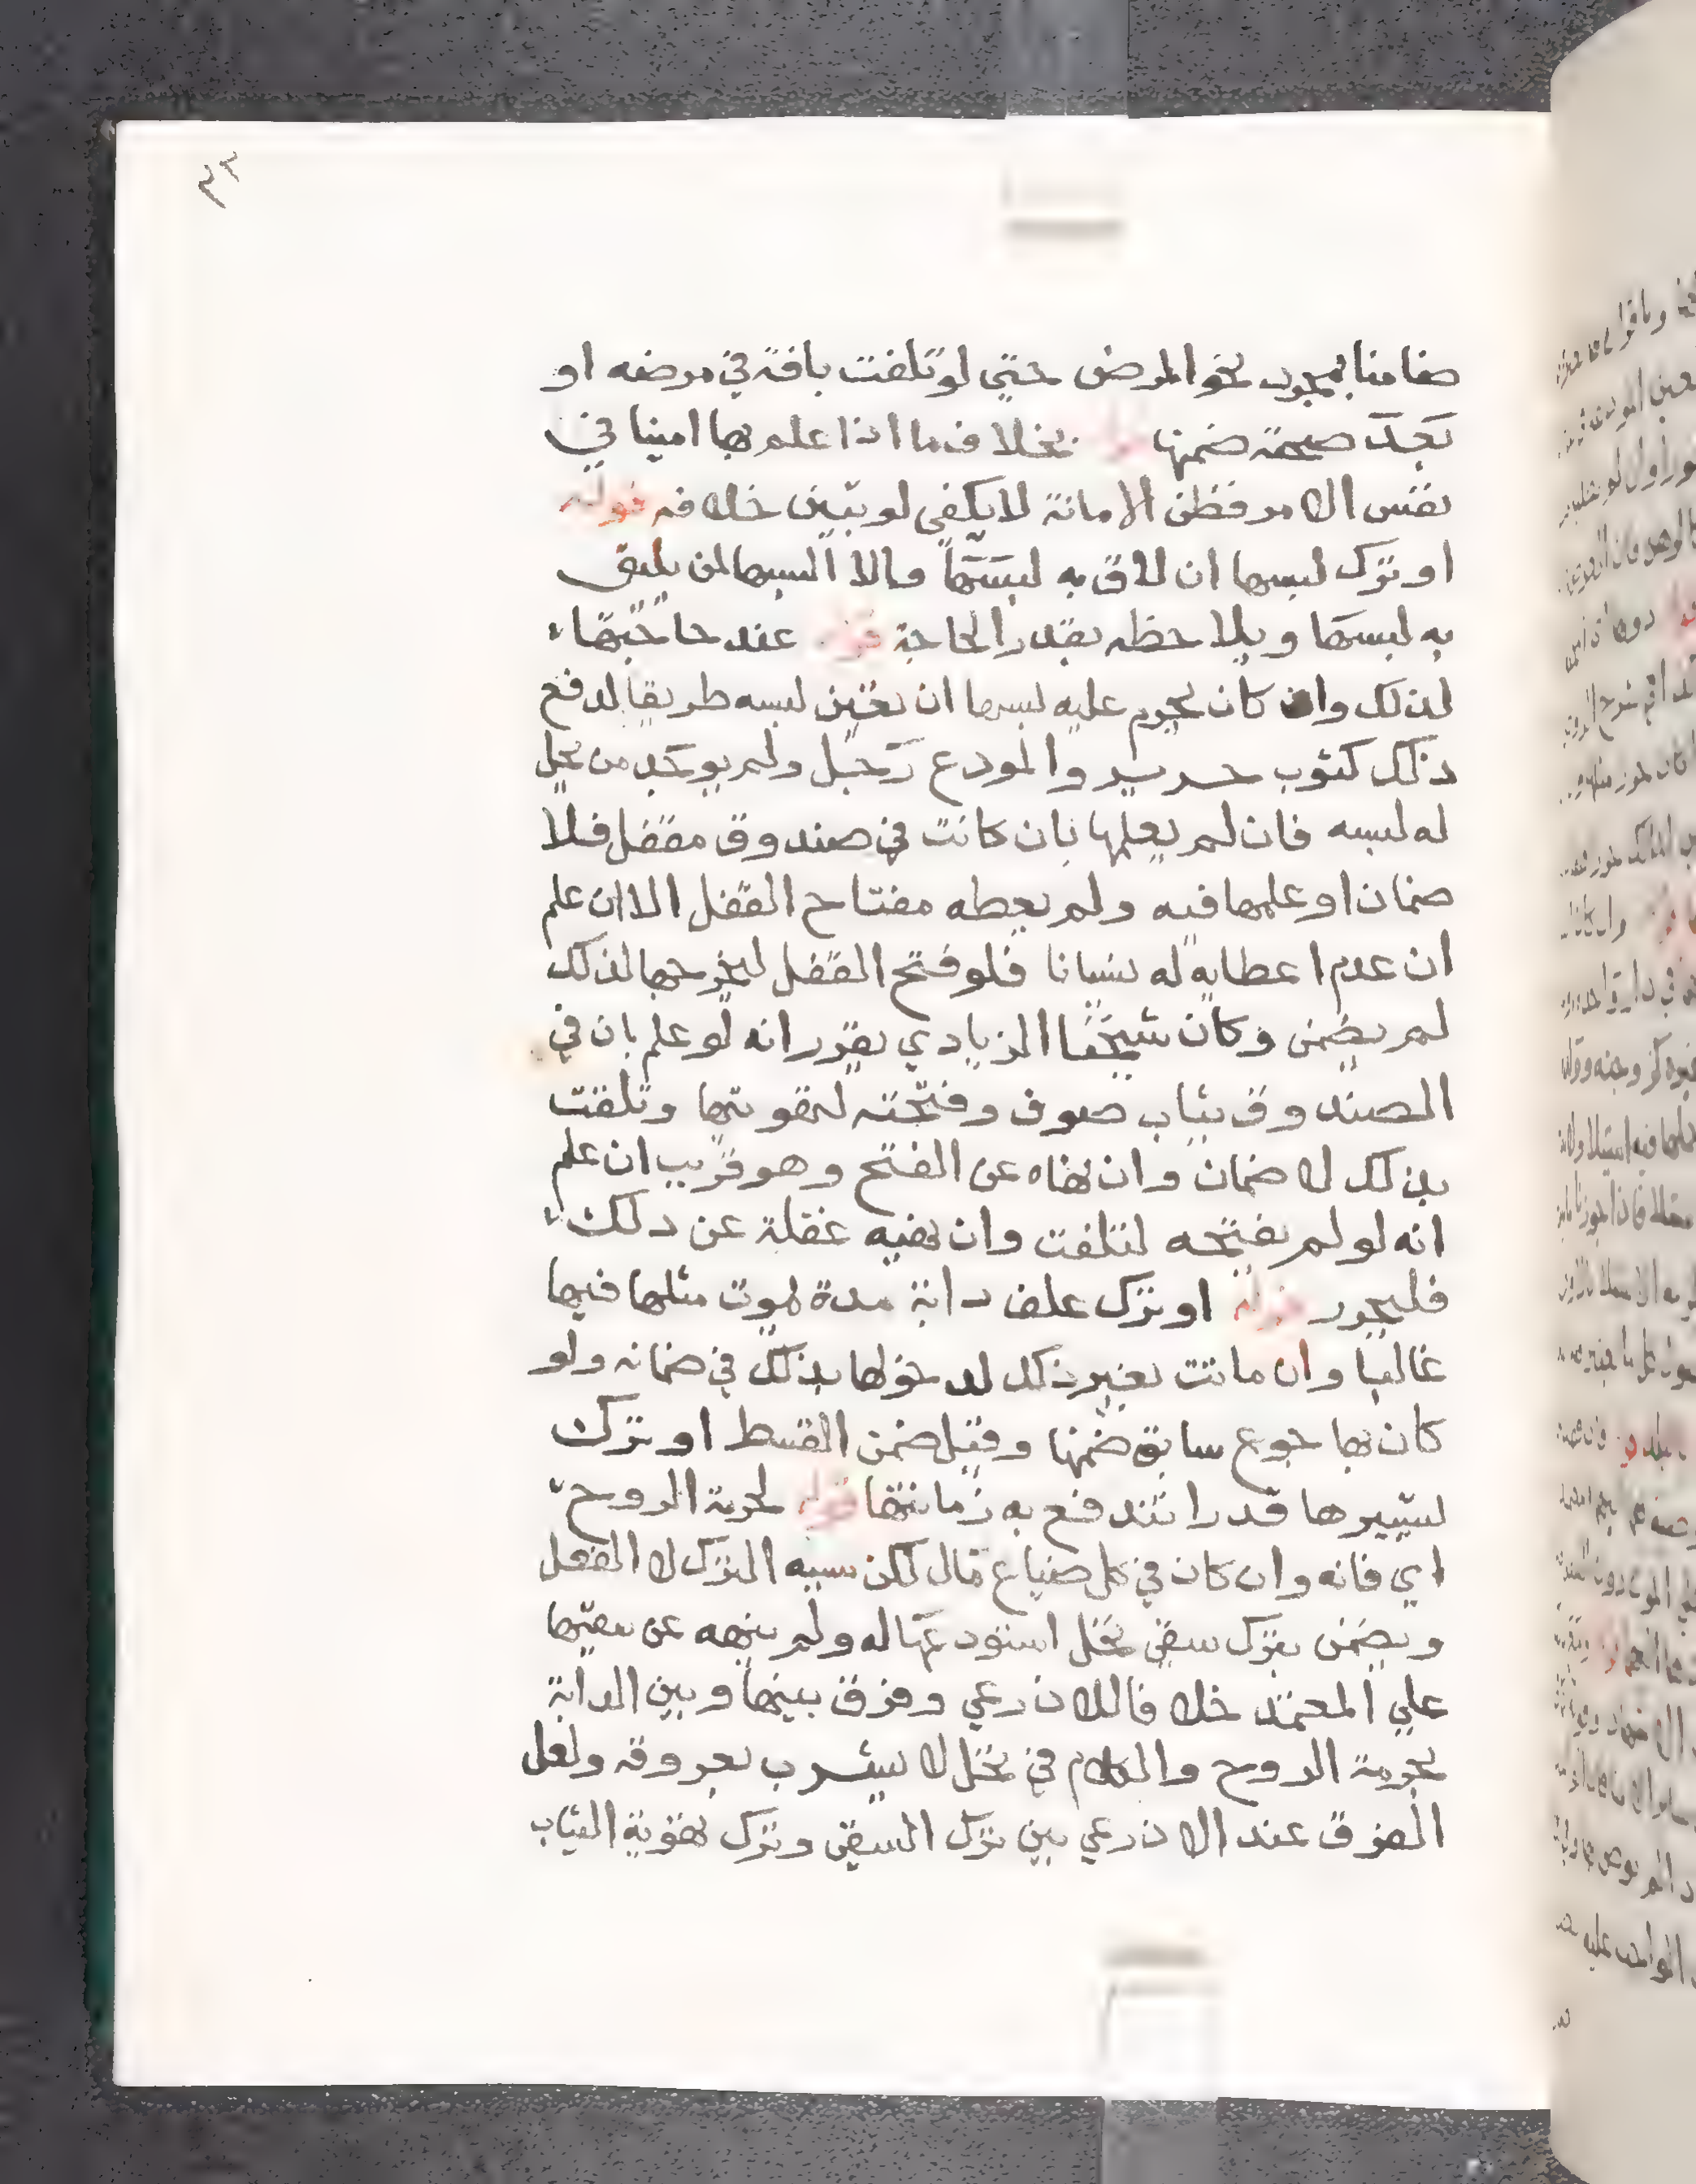 ٣٣
ضامنا بمجرد نحو المرض حتي لو تلفت بافة في مرضه او
بعد صحته ضمنها قوله بخلاف ما اذا علم بها امينا في
نفس الامر فظن الامانة لا يكفي لو تبين خلافه قوله
او ترك لبسها ان لاق به لبسها والا البسها لمن يليق
به لبسها ويلاحظه بقدر الحاجة قوله عند حاجتها
لذلك وان كان يحرم عليه لبسها ان تعين لبسه طريقا لدفع
ذلك كثوب حرير والمودع رجل ولم يوجد من يحل
له لبسه فان لم يعلمها بان كانت في صندوق مقفل فلا
ضمان او علمها فيه ولم يعطه مفتاح القفل الا ان علم
ان عدم اعطايه له نسيانا فلو فتح القفل ليخرجها لذلك
لم يضمن وكان شيخنا الزيادي يقرر انه لو علم بان في
الصندوق ثياب صوف وفتحته لتهويتها وتلفت
بذلك لا ضمان وان نهاه عن الفتح وهو قريب ان علم
انه لو لم يفتحه لتلفت وان نهيه غفلة عن ذلك
فليحرر قوله او ترك علف دابة مدة يموت مثلها فيها
غالبا وان ماتت بغير ذلك لدخولها بذلك في ضمانه ولو
كان بها جوع سابق ضمنها وقيل ضمن القسط او ترك
تسييرها قدرا تندفع به زمانتها قوله لحرمة الروح
اي فانه وان كان في كل ضياع مال لكن سببه الترك لا الفعل
ويضمن بترك سقي نخل استودعها له ولم ينهه عن سقيها
علي المعتمد خلافا للاذرعي وفرق بينها وبين الدابة
بحرمة الروح والكلام في نخل لا يشرب بعروقه ولعل
الفرق عند الاذرعي بين ترك السقي وترك تهوية الثياب